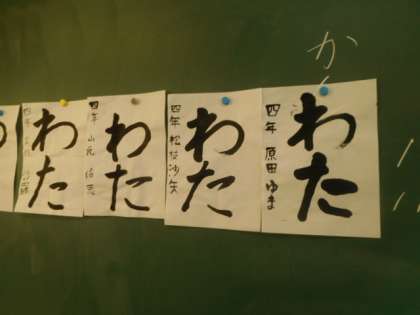 か
わた
四年 原田 ゆま
わた
四年 松枝沙矢
わた
四年 山元
わた